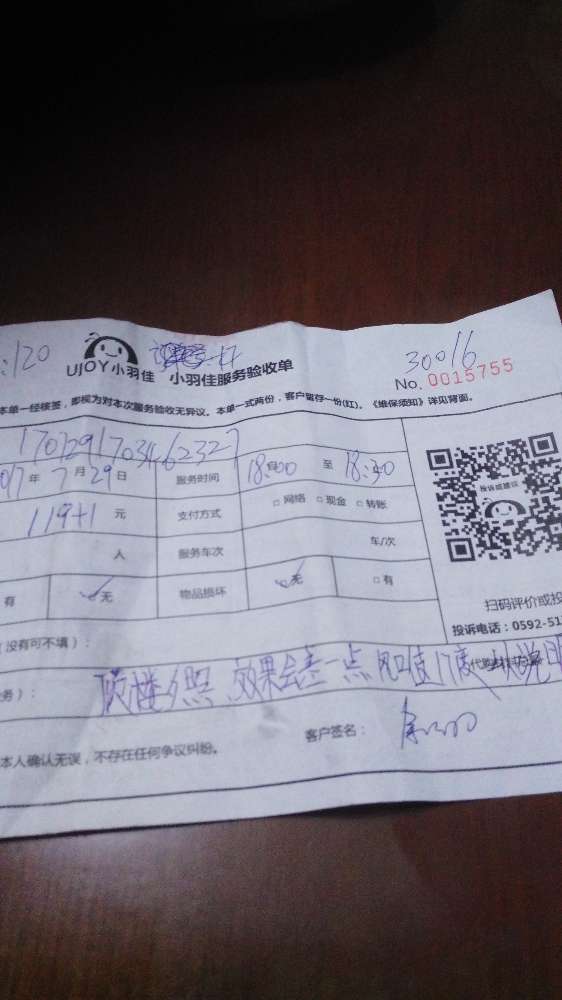 :120
30016
UJOY小羽佳 小羽佳服务验收单
No. 0015755
本单一经核签，即视为对本次服务验收无异议。本单一式两份，客户留存一份(红)。《维保须知》详见背面。
1707291703462327
017年7月29日 服务时间 18:00 至 18:30
119+1元 支付方式 □网络 □现金 □转账
投诉或建议
人 服务车次 车/次
有 ✓无 物品损坏 ✓无 □有
扫码评价或投
(没有可不填)：
投诉电话：0592-51
务)： 顶楼夕照 效果会差一点 风口值17度
客户签名：
本人确认无误，不存在任何争议纠纷。